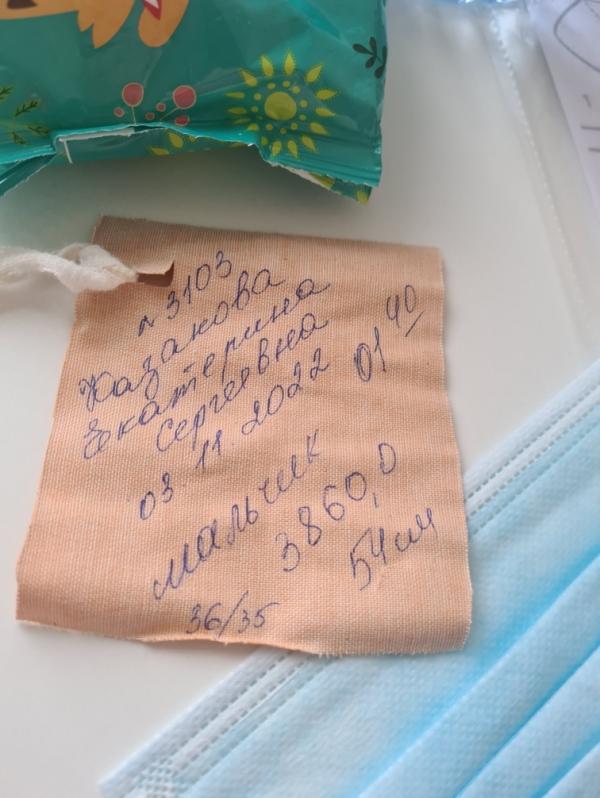 n 3103
Казакова
Екатерина
Сергеевна
03.11.2022 01 40
мальчик
3860,0
54 см
36/35